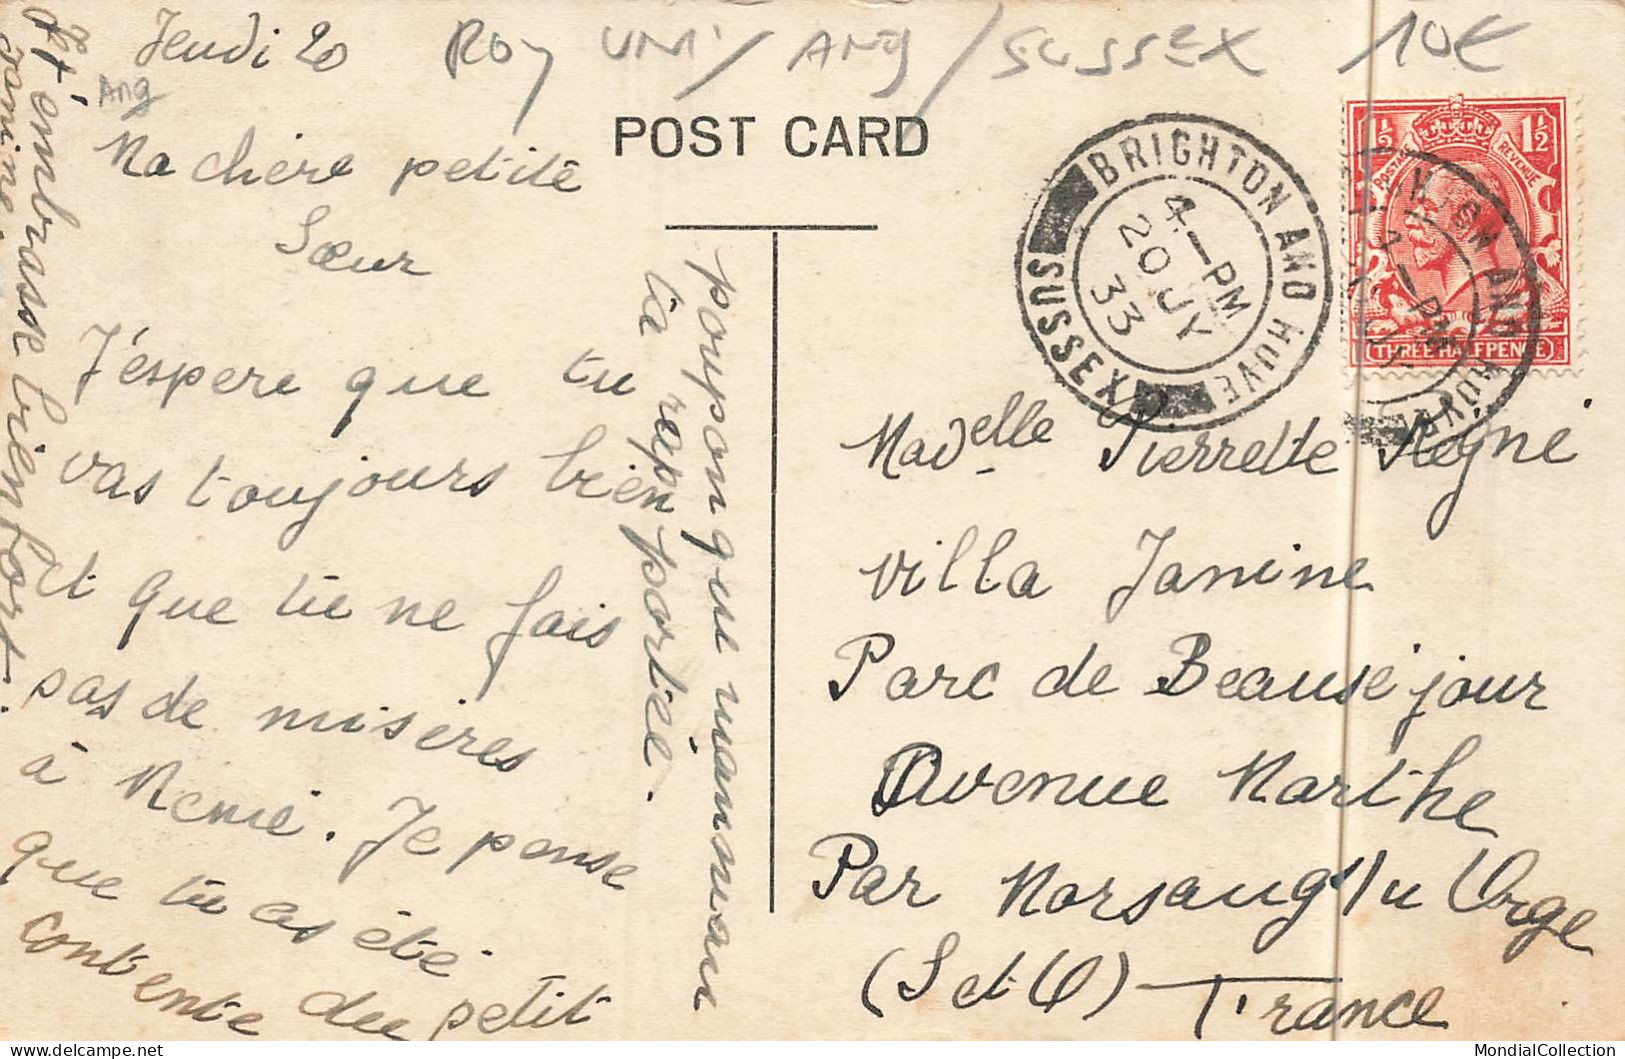 Jeudi 20
ROY UNI / ANG / SUSSEX 10€
Ang
POST CARD
Ma chère petite
Sœur
J'éspere que tu
vas toujours bien
et que tu ne fais
pas de misères
à Mémé. Je pense
que tu as été
contente du petit
poupon que maman
t'a rapportée.
Je t'embrasse bien fort.
Janine.
BRIGHTON AND HOVE
SUSSEX
4 - PM
20 JY
33
BRIGHTON AND HOVE
- PM
1½ 1½
POSTAGE REVENUE
THREE HALFPENCE
Madelle Pierrette Régni
villa Janine
Parc de Beauséjour
Avenue Marthe
Par Morsang s/ Orge
(S et O) France
MondialCollection